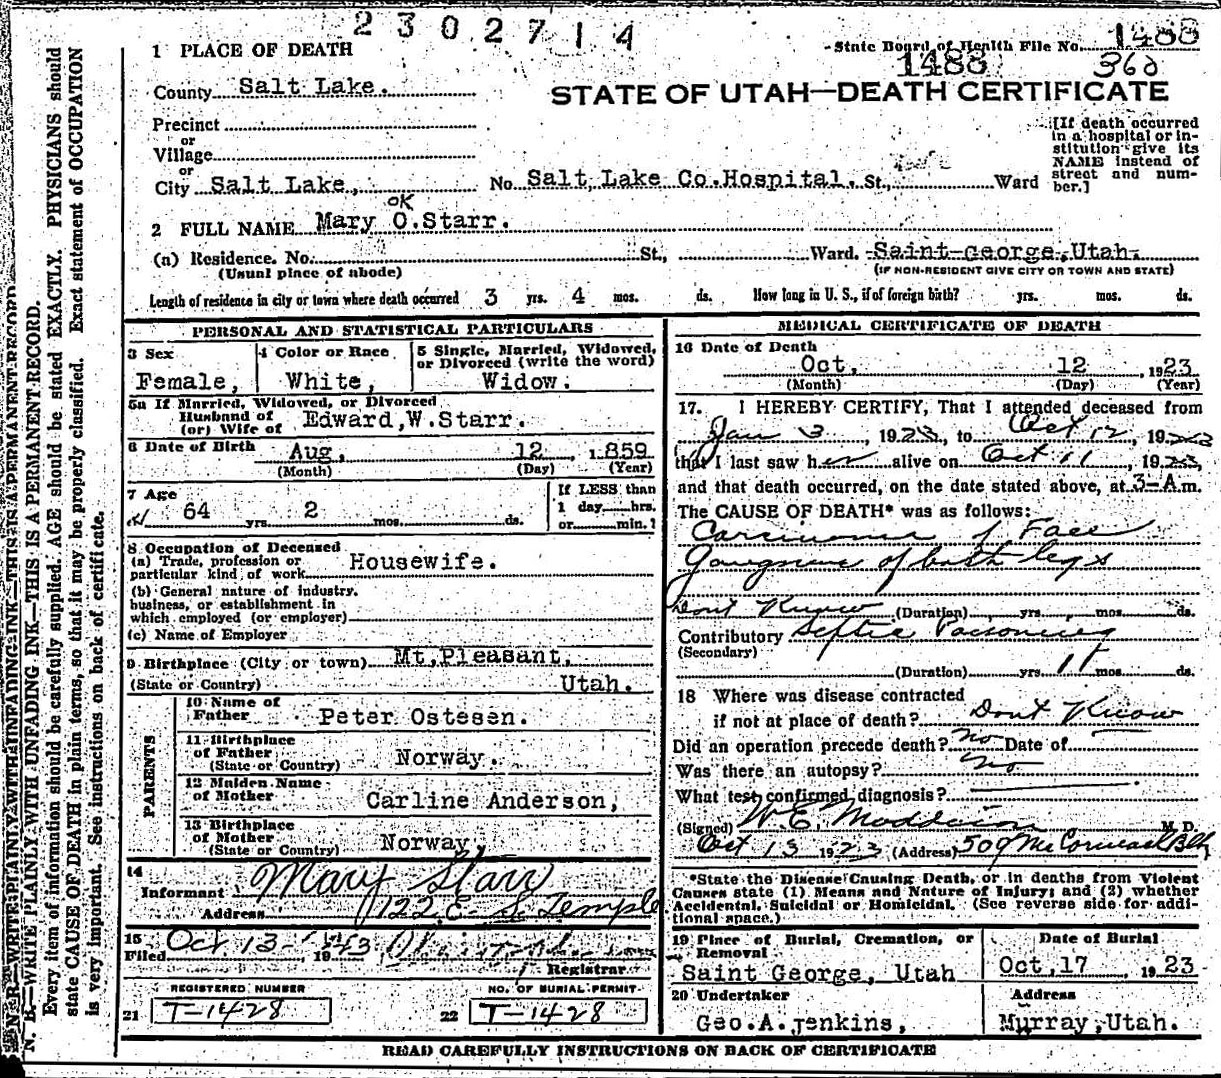 2302714
1 PLACE OF DEATH
State Board of Health File No. 1488
1488 360
County Salt Lake.
STATE OF UTAH—DEATH CERTIFICATE
Precinct
or
Village
or
City Salt Lake, No. Salt Lake Co. Hospital. St., Ward
[If death occurred
in a hospital or in-
stitution give its
NAME instead of
street and num-
ber.]
OK
2 FULL NAME Mary O. Starr.
(a) Residence. No. St., Ward. Saint George, Utah.
(Usual place of abode) (IF NON-RESIDENT GIVE CITY OR TOWN AND STATE)
Length of residence in city or town where death occurred 3 yrs. 4 mos. ds. How long in U. S., if of foreign birth? yrs. mos. ds.
PERSONAL AND STATISTICAL PARTICULARS
3 Sex
Female,
4 Color or Race
White,
5 Single, Married, Widowed,
or Divorced (write the word)
Widow.
5a If Married, Widowed, or Divorced
Husband of
(or) Wife of Edward, W. Starr.
6 Date of Birth Aug, 12, 1859
(Month) (Day) (Year)
7 Age
64 yrs. 2 mos. ds.
If LESS than
1 day hrs.
or min.?
8 Occupation of Deceased
(a) Trade, profession or
particular kind of work Housewife.
(b) General nature of industry,
business, or establishment in
which employed (or employer)
(c) Name of Employer
9 Birthplace (City or town) Mt, Pleasant,
(State or Country) Utah.
PARENTS
10 Name of
Father Peter Ostesen.
11 Birthplace
of Father
(State or Country) Norway.
12 Maiden Name
of Mother Carline Anderson,
13 Birthplace
of Mother
(State or Country) Norway,
14
Informant Mary Starr
Address 122 E. S. Temple
15
Filed Oct. 13- 1923
Registrar
REGISTERED NUMBER
21 T-1428
NO. OF BURIAL PERMIT
22 T-1428
MEDICAL CERTIFICATE OF DEATH
16 Date of Death
Oct, 12, 1923
(Month) (Day) (Year)
17. I HEREBY CERTIFY, That I attended deceased from
Jan 3, 1923, to Oct 12, 1923
that I last saw her alive on Oct 11, 1923,
and that death occurred, on the date stated above, at 3-A.m.
The CAUSE OF DEATH* was as follows:
Carcinoma of Face
Gangrene of both legs
Dont Know (Duration) yrs. mos. ds.
Contributory Septic Poisoning
(Secondary)
(Duration) yrs. 11 mos. ds.
18 Where was disease contracted
if not at place of death? Dont Know
Did an operation precede death? no Date of
Was there an autopsy? no
What test confirmed diagnosis?
(Signed) W. E. M. D.
Oct 13 1923 (Address) 509 McCornick Bldg
*State the Disease Causing Death, or in deaths from Violent
Causes state (1) Means and Nature of Injury; and (2) whether
Accidental, Suicidal or Homicidal. (See reverse side for addi-
tional space.)
19 Place of Burial, Cremation, or
Removal
Saint George, Utah
Date of Burial
Oct, 17 1923
20 Undertaker
Geo. A. Jenkins,
Address
Murray, Utah.
READ CAREFULLY INSTRUCTIONS ON BACK OF CERTIFICATE
N. B.—WRITE PLAINLY WITH UNFADING INK—THIS IS A PERMANENT RECORD
N. B.—WRITE PLAINLY WITH UNFADING INK—THIS IS A PERMANENT RECORD.
Every item of information should be carefully supplied. AGE should be stated EXACTLY. PHYSICIANS should
state CAUSE OF DEATH in plain terms, so that it may be properly classified. Exact statement of OCCUPATION
is very important. See instructions on back of certificate.